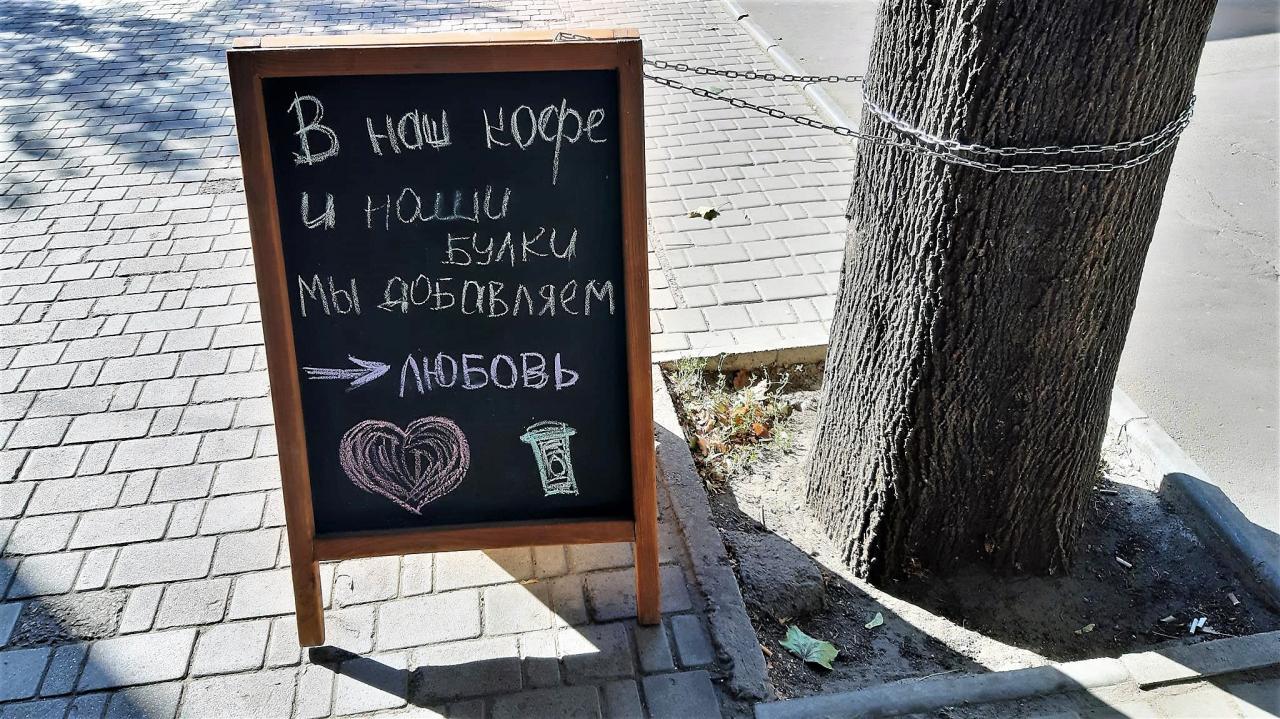 В наш кофе
и наши
булки
мы добавляем
→ любовь